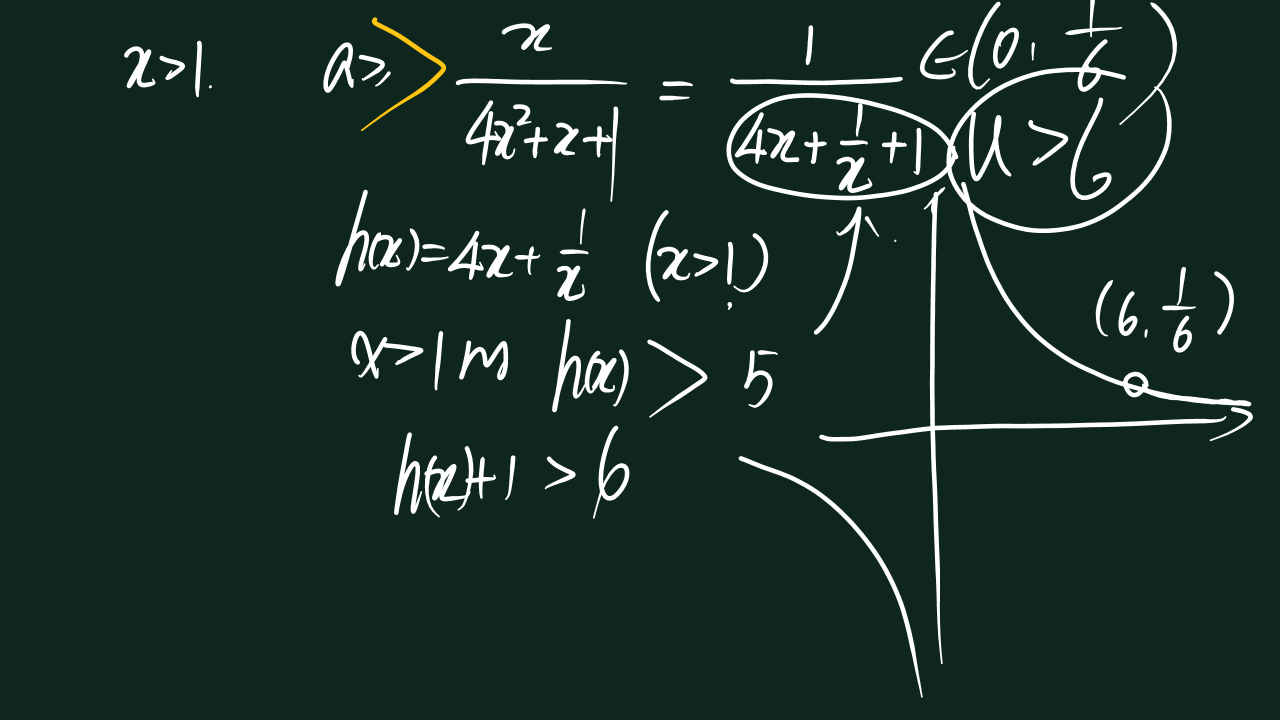 x>1. a≥ > x/(4x²+x+1) = 1/(4x+1/x+1) ∈(0, 1/6)
u>6
h(x)=4x+1/x (x>1)
(6, 1/6)
x>1时 h(x) > 5
h(x)+1 > 6